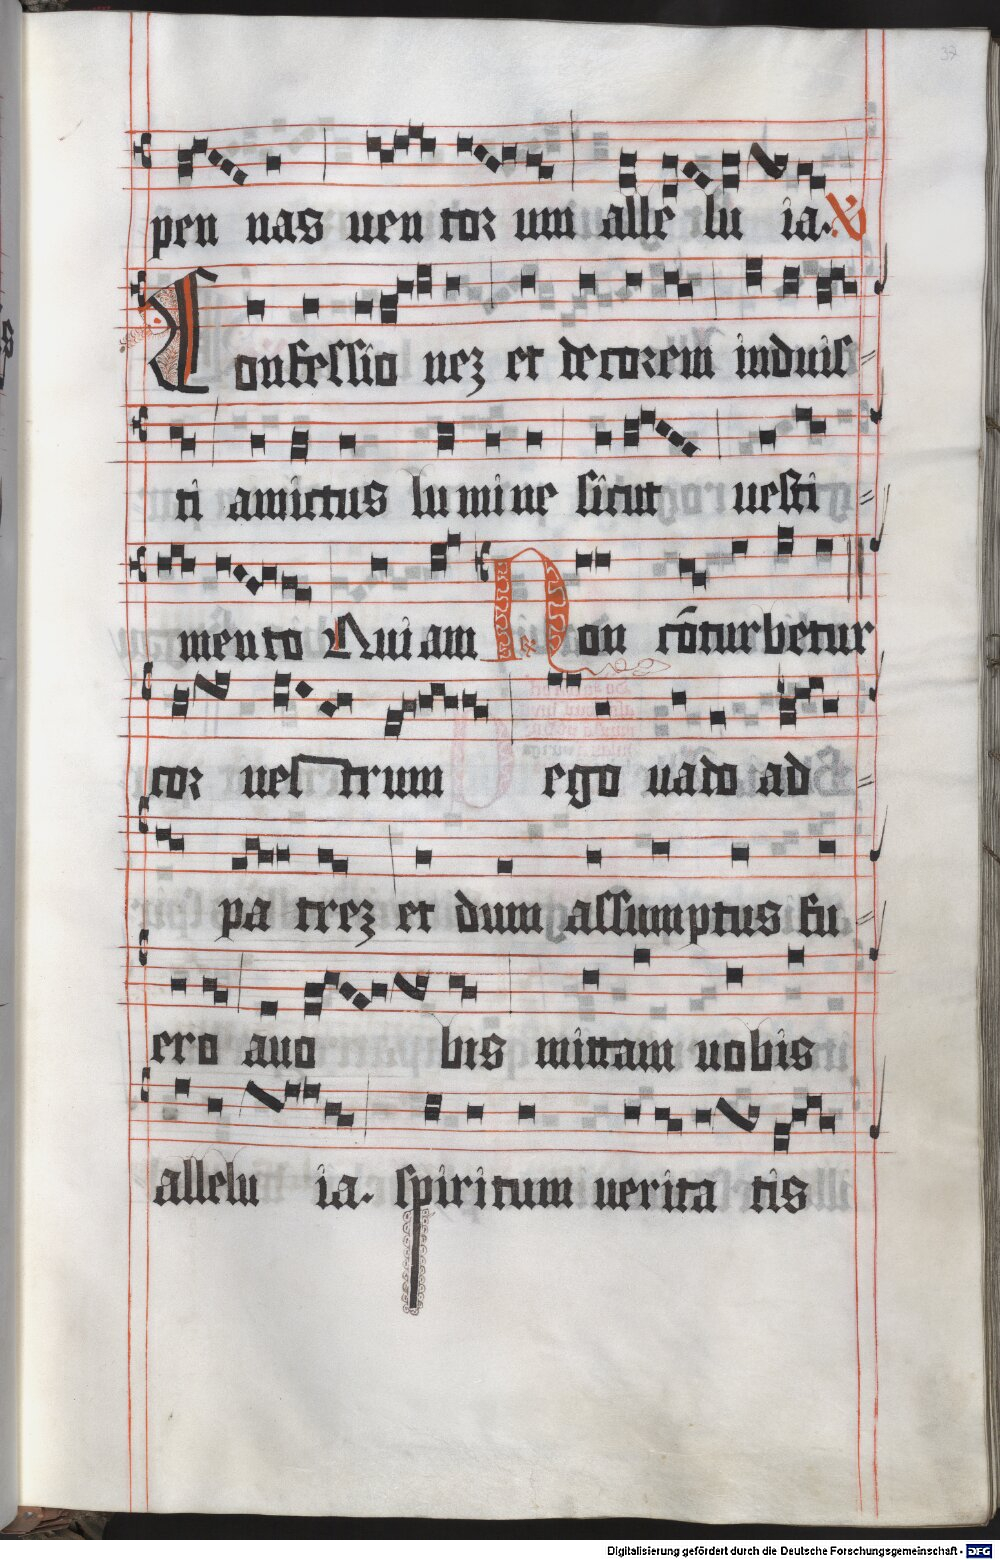 37
pen nas uen tor um alle lu ia. ℣
Confessio nez et decorem induis⸗
ti amictus lumine sicut uesti⸗
mento Quiam Non cōturbetur
cor uestrum ego uado ad⸗
pa trez et dum assumptus fu⸗
ero auo bis mittam uobis
allelu ia. spiritum uerita tis
Digitalisierung gefördert durch die Deutsche Forschungsgemeinschaft - DFG